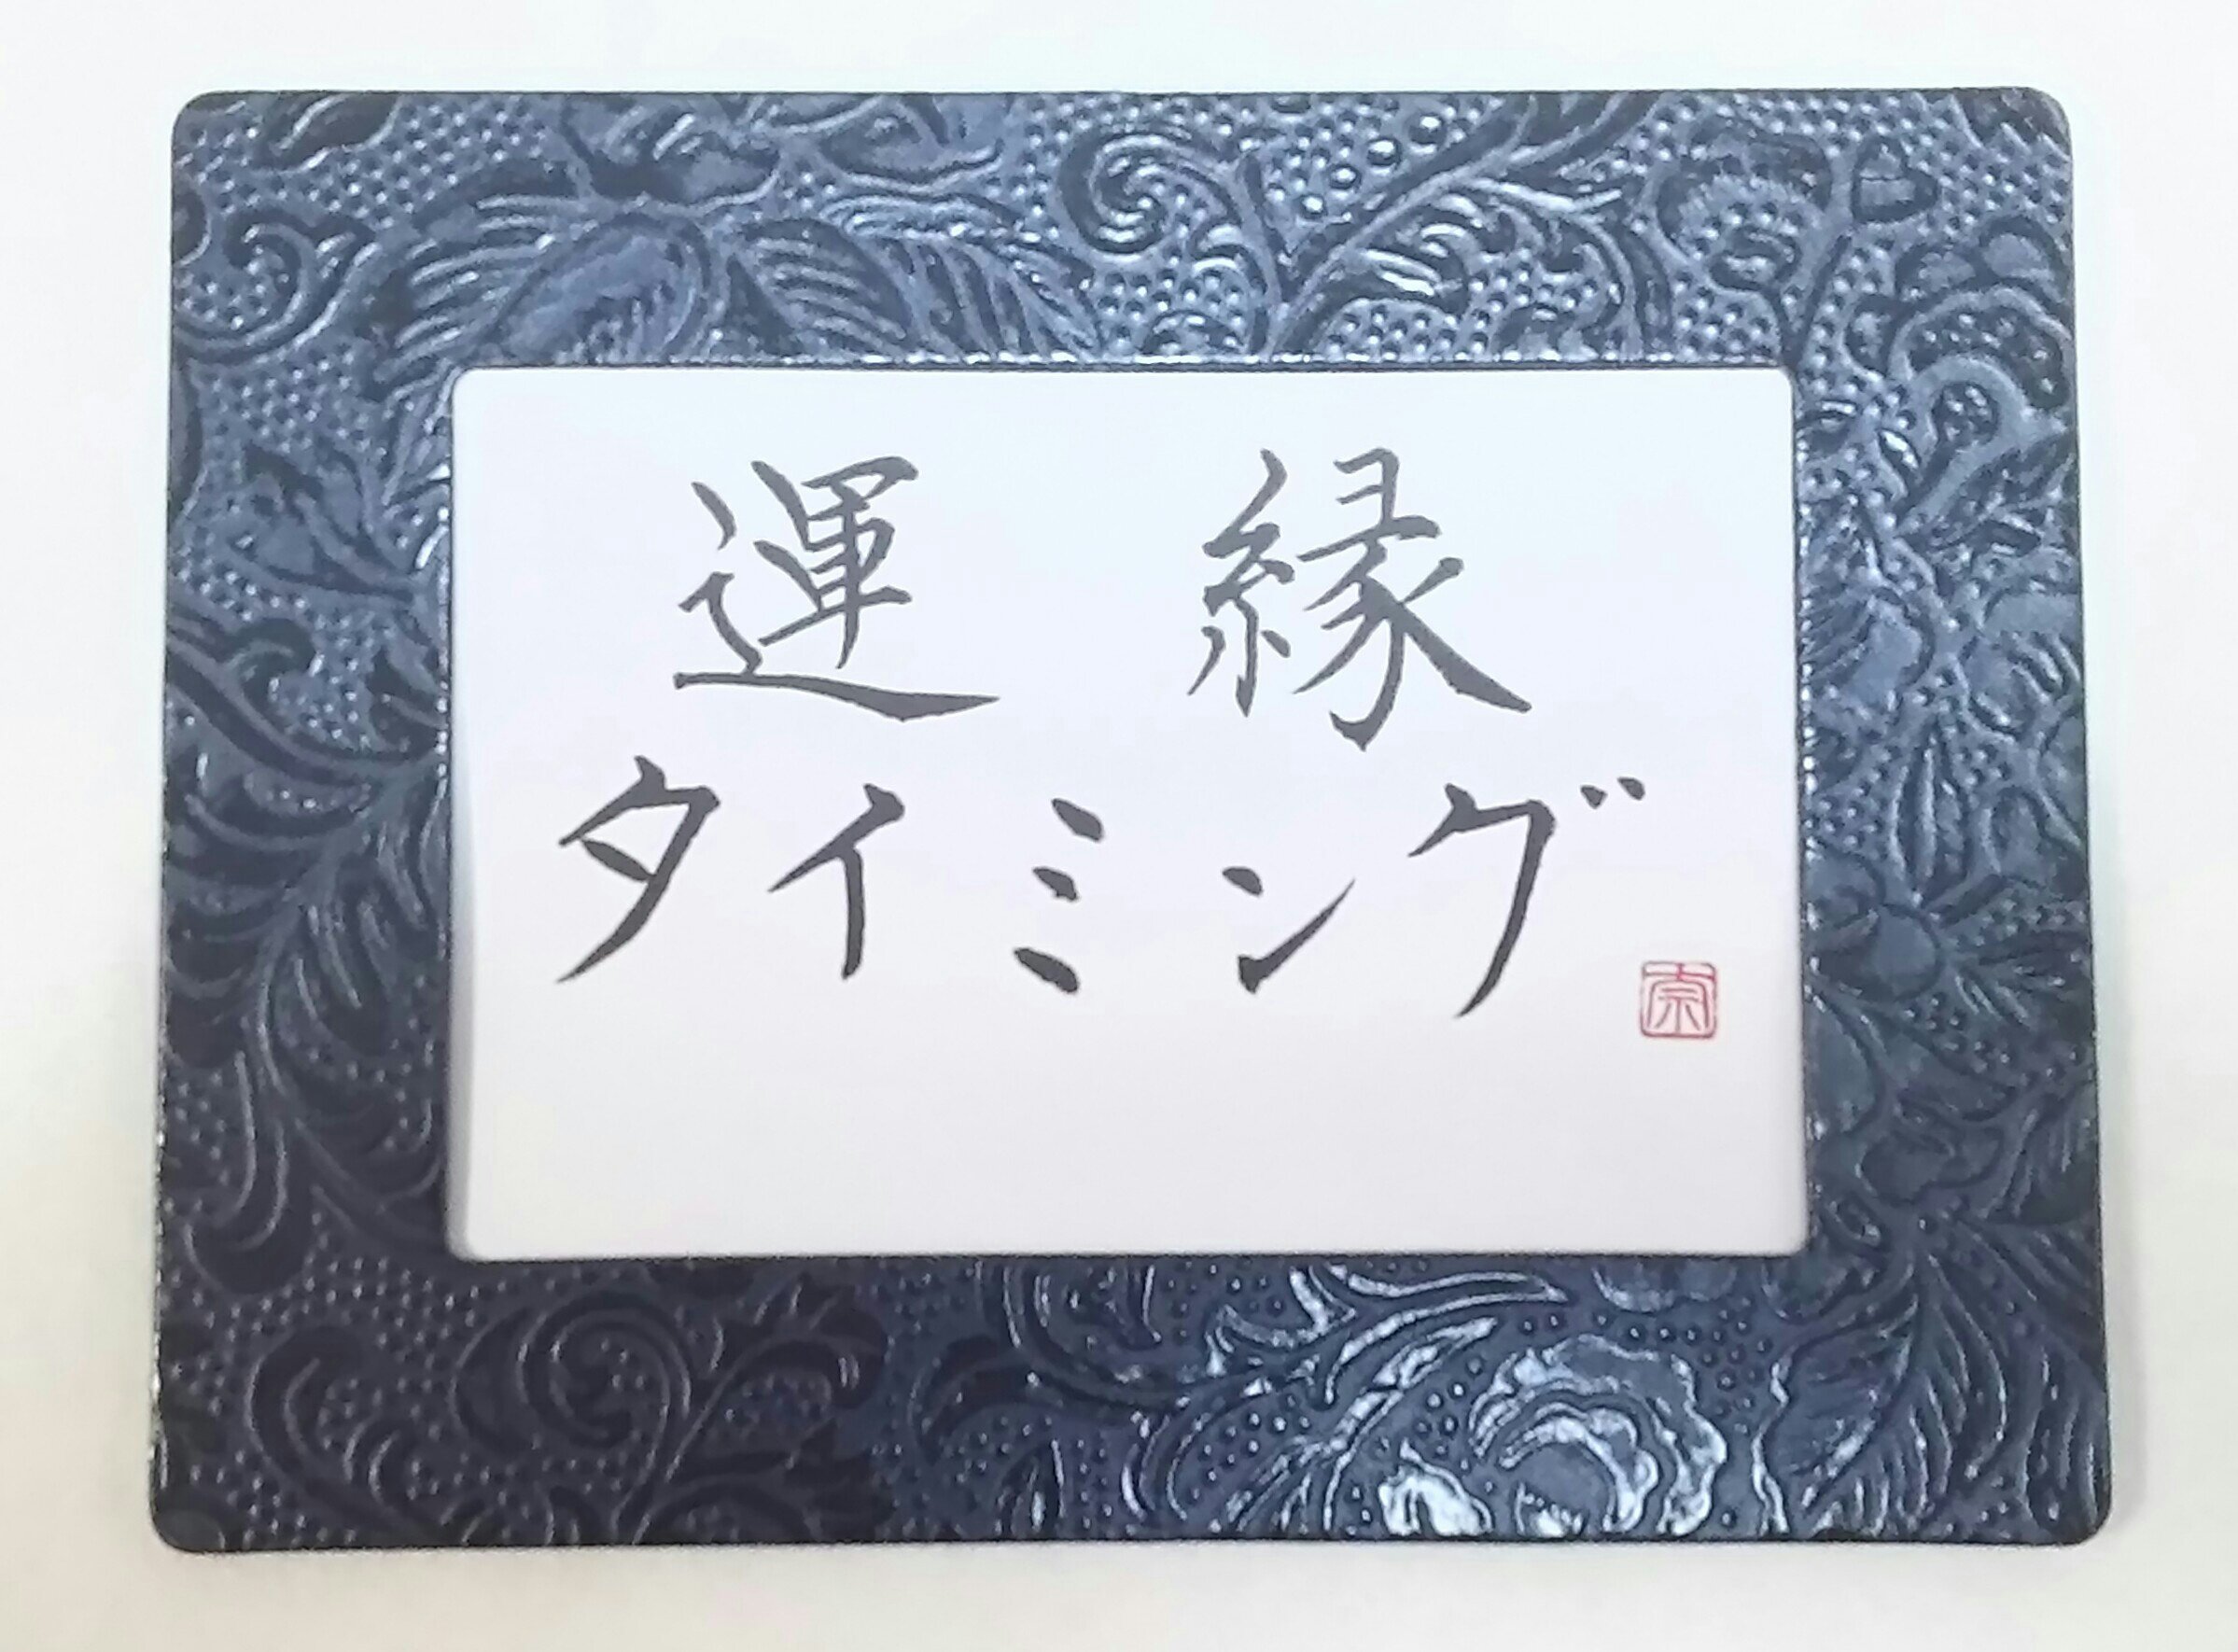 運 縁
タイミング